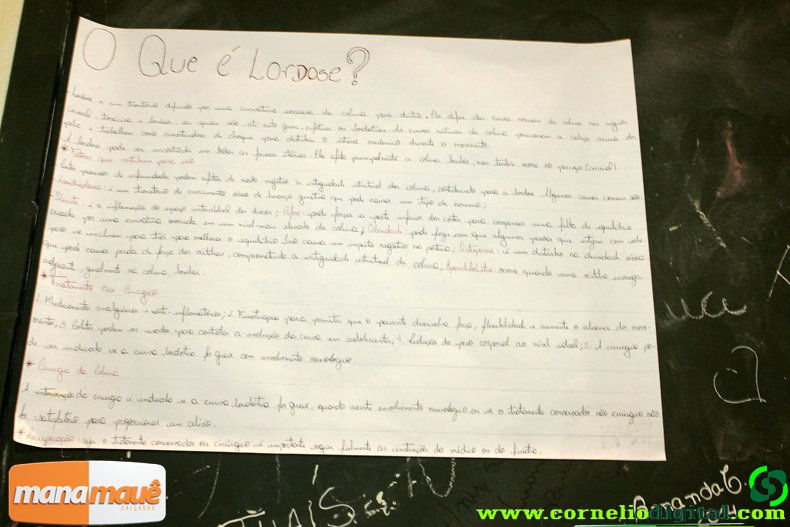 O Que é Lordose?
Lordose é um transtorno definido por uma curvatura excessiva da coluna para dentro. Ela difere das curvas normais da coluna nas regiões
cervical, torácica e lombar, as quais são, até certo grau, cifóticas ou lordóticas. As curvas naturais da coluna posicionam a cabeça acima da
pelve e trabalham como amortecedores de choque para distribuir o estresse mecânico durante o movimento.
A lordose pode ser encontrada em todas as faixas etárias. Ela afeta principalmente a coluna lombar, mas também ocorre no pescoço (cervical).
* Fatores que contribuem para isso
Certos processos de enfermidade podem afetar de modo negativo a integridade estrutural da coluna, contribuindo para a lordose. Algumas causas comuns são:
é um transtorno de crescimento ósseo de herança genética que pode causar um tipo de nanismo;
Discite: é a inflamação do espaço intervertebral dos discos; Cifose: pode forçar a parte inferior das costas para compensar uma falta de equilíbrio
criada por uma curvatura ocorrida em um nível mais elevado da coluna; Obesidade: pode fazer com que algumas pessoas que estejam com sobre-
peso se inclinem para trás para melhorar o equilíbrio. Isso causa um impacto negativo na postura; Osteoporose: é um distúrbio na densidade óssea
que pode causar perda de força das vértebras, comprometendo a integridade estrutural da coluna; Espondilolistese: ocorre quando uma vértebra escorrega
adjacente, geralmente na coluna lombar.
* Tratamento Não Cirúrgico
1. Medicamento analgésico e anti-inflamatórios; 2. Fisioterapia para permitir que o paciente desenvolva força, flexibilidade e aumente o alcance do movi-
mento; 3. Colete podem ser usado para controlar a evolução da curva em adolescentes; 4. Redução do peso corporal ao nível ideal; 5. A cirurgia po-
de ser indicada se a curva lordótica for grave com envolvimento neurológico.
* Cirurgia da Coluna
A intervenção da cirurgia é indicada se a curva lordótica for grave, quando existe envolvimento neurológico ou se o tratamento conservador não cirúrgico não
foi satisfatório para proporcionar um alívio.
* Recuperação: seja o tratamento conservador ou cirúrgico, é importante seguir fielmente as instruções do médico ou do fisiatra.
manamauê
CALÇADOS
www.corneliodigital.com